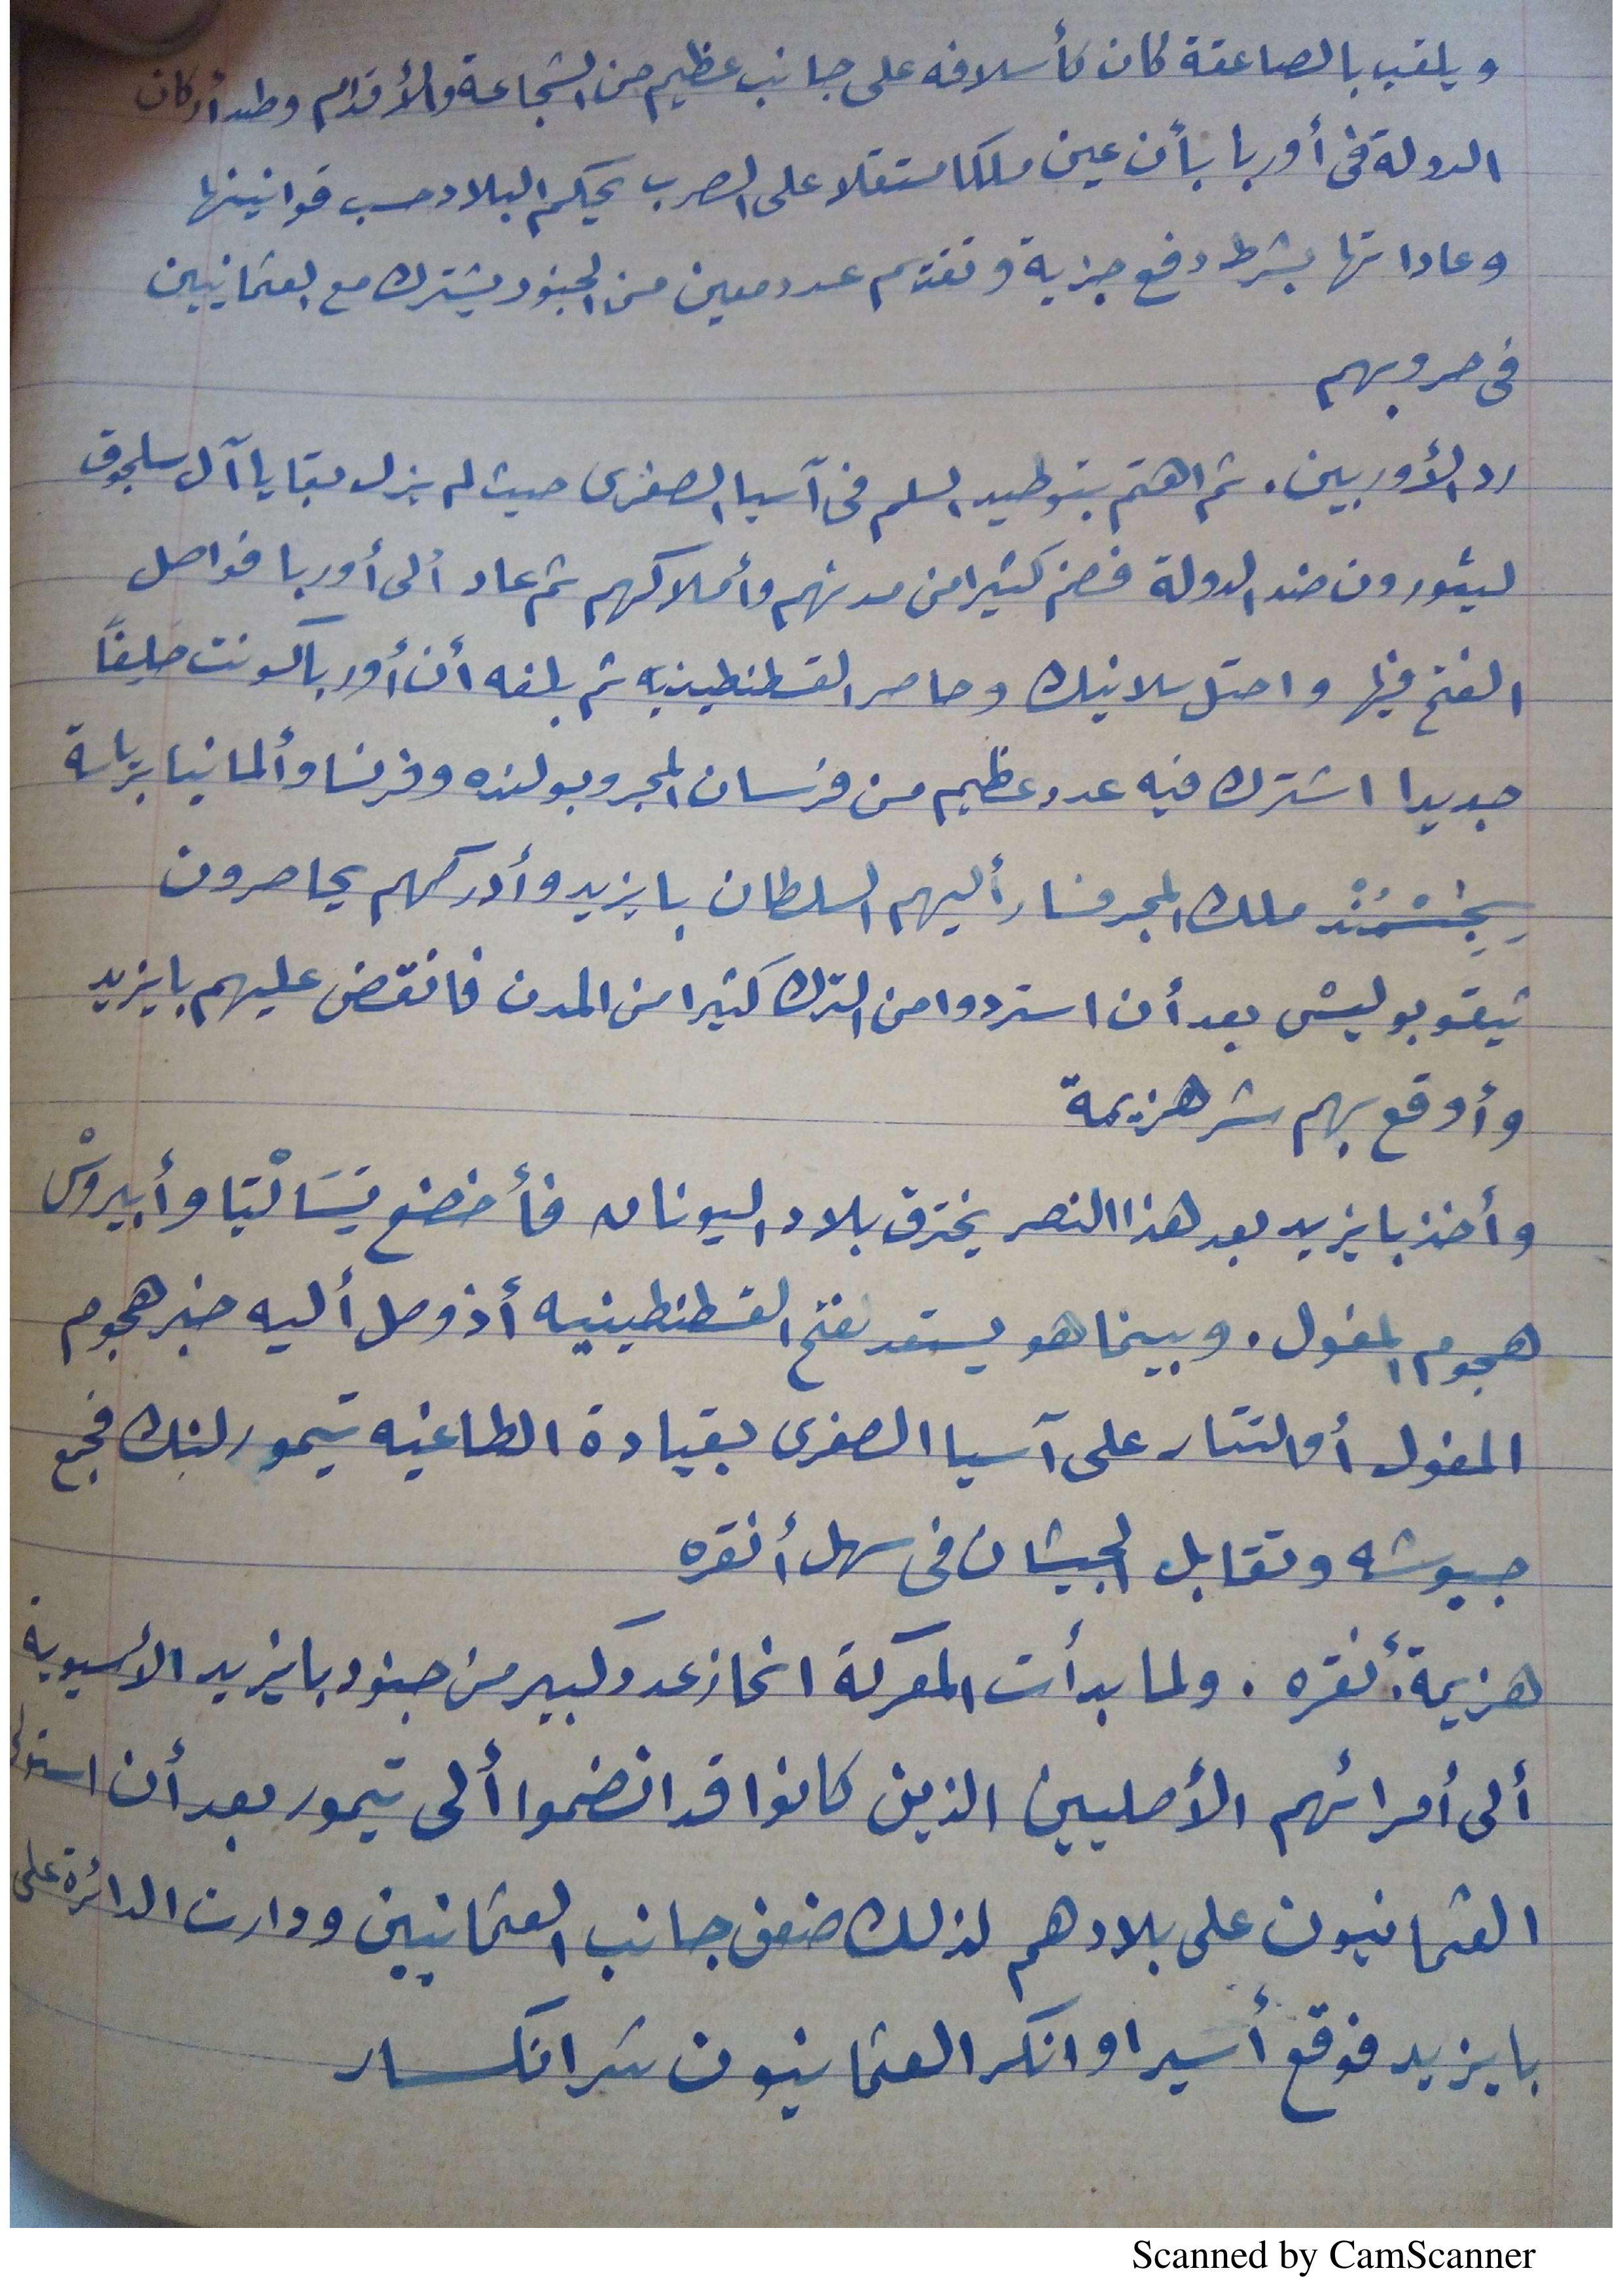 ويلقب بالصاعقة كان كأسلافه على جانب عظيم من الشجاعة والأقدام وطد أركان
الدولة فى أوربا بأن عين ملكا مستقلا على الصرب يحكم البلاد حسب قوانينها
وعاداتها بشرط دفع جزية وتقديم عدد معين من الجنود يشترك مع العثمانيين
فى حروبهم
رد الأوربيين . ثم اهتم بتوطيد السلم فى آسيا الصغرى حيث لم يزل بقايا آل سلجوق
ليثورون ضد الدولة فضم كثيرا من مدنهم وأملاكهم ثم عاد ألى أوربا فواصل
الفتح فيها واحتل سلانيك وحاصر القسطنطينيه ثم بلغه أن أوربا كونت حليفًا
جديدا اشترك فيه عدد عظيم من فرسان المجر وبولنده وفرنسا وألمانيا برياسة
ملك المجر فسار أليهم السلطان بايزيد وأدركهم يحاصرون
نيقوبوليس بعد أن استردوا من الترك كثيرا من المدن فانقض عليهم بايزيد
وأوقع بهم شر هزيمة
وأخذ بايزيد بعد هذا النصر يخترق بلاد اليونان فأخضع تِسَالْيَا وأبيروسْ
هجوم المغول . وبينما هو يستعد لفتح القسطنطينيه أذ وصل أليه خبر هجوم
المغول أو التتار على آسيا الصغرى بقيادة الطاغيه تيمورلنك فجمع
جيوشه وتقابل الجيشان فى سهل أنقره
هزيمة أنقره . ولما بدأت المعركة انحاز عدد كبير من جنود بايزيد الأسيوية
ألى أمرائهم الأصليين الذين كانوا قد انضموا ألى تيمور بعد أن استولى
العثمانيون على بلادهم لذلك ضعف جانب العثمانيين ودارت الدائرة على
بايزيد فوقع أسيرا وانكسر العثمانيون شر انكسار
Scanned by CamScanner